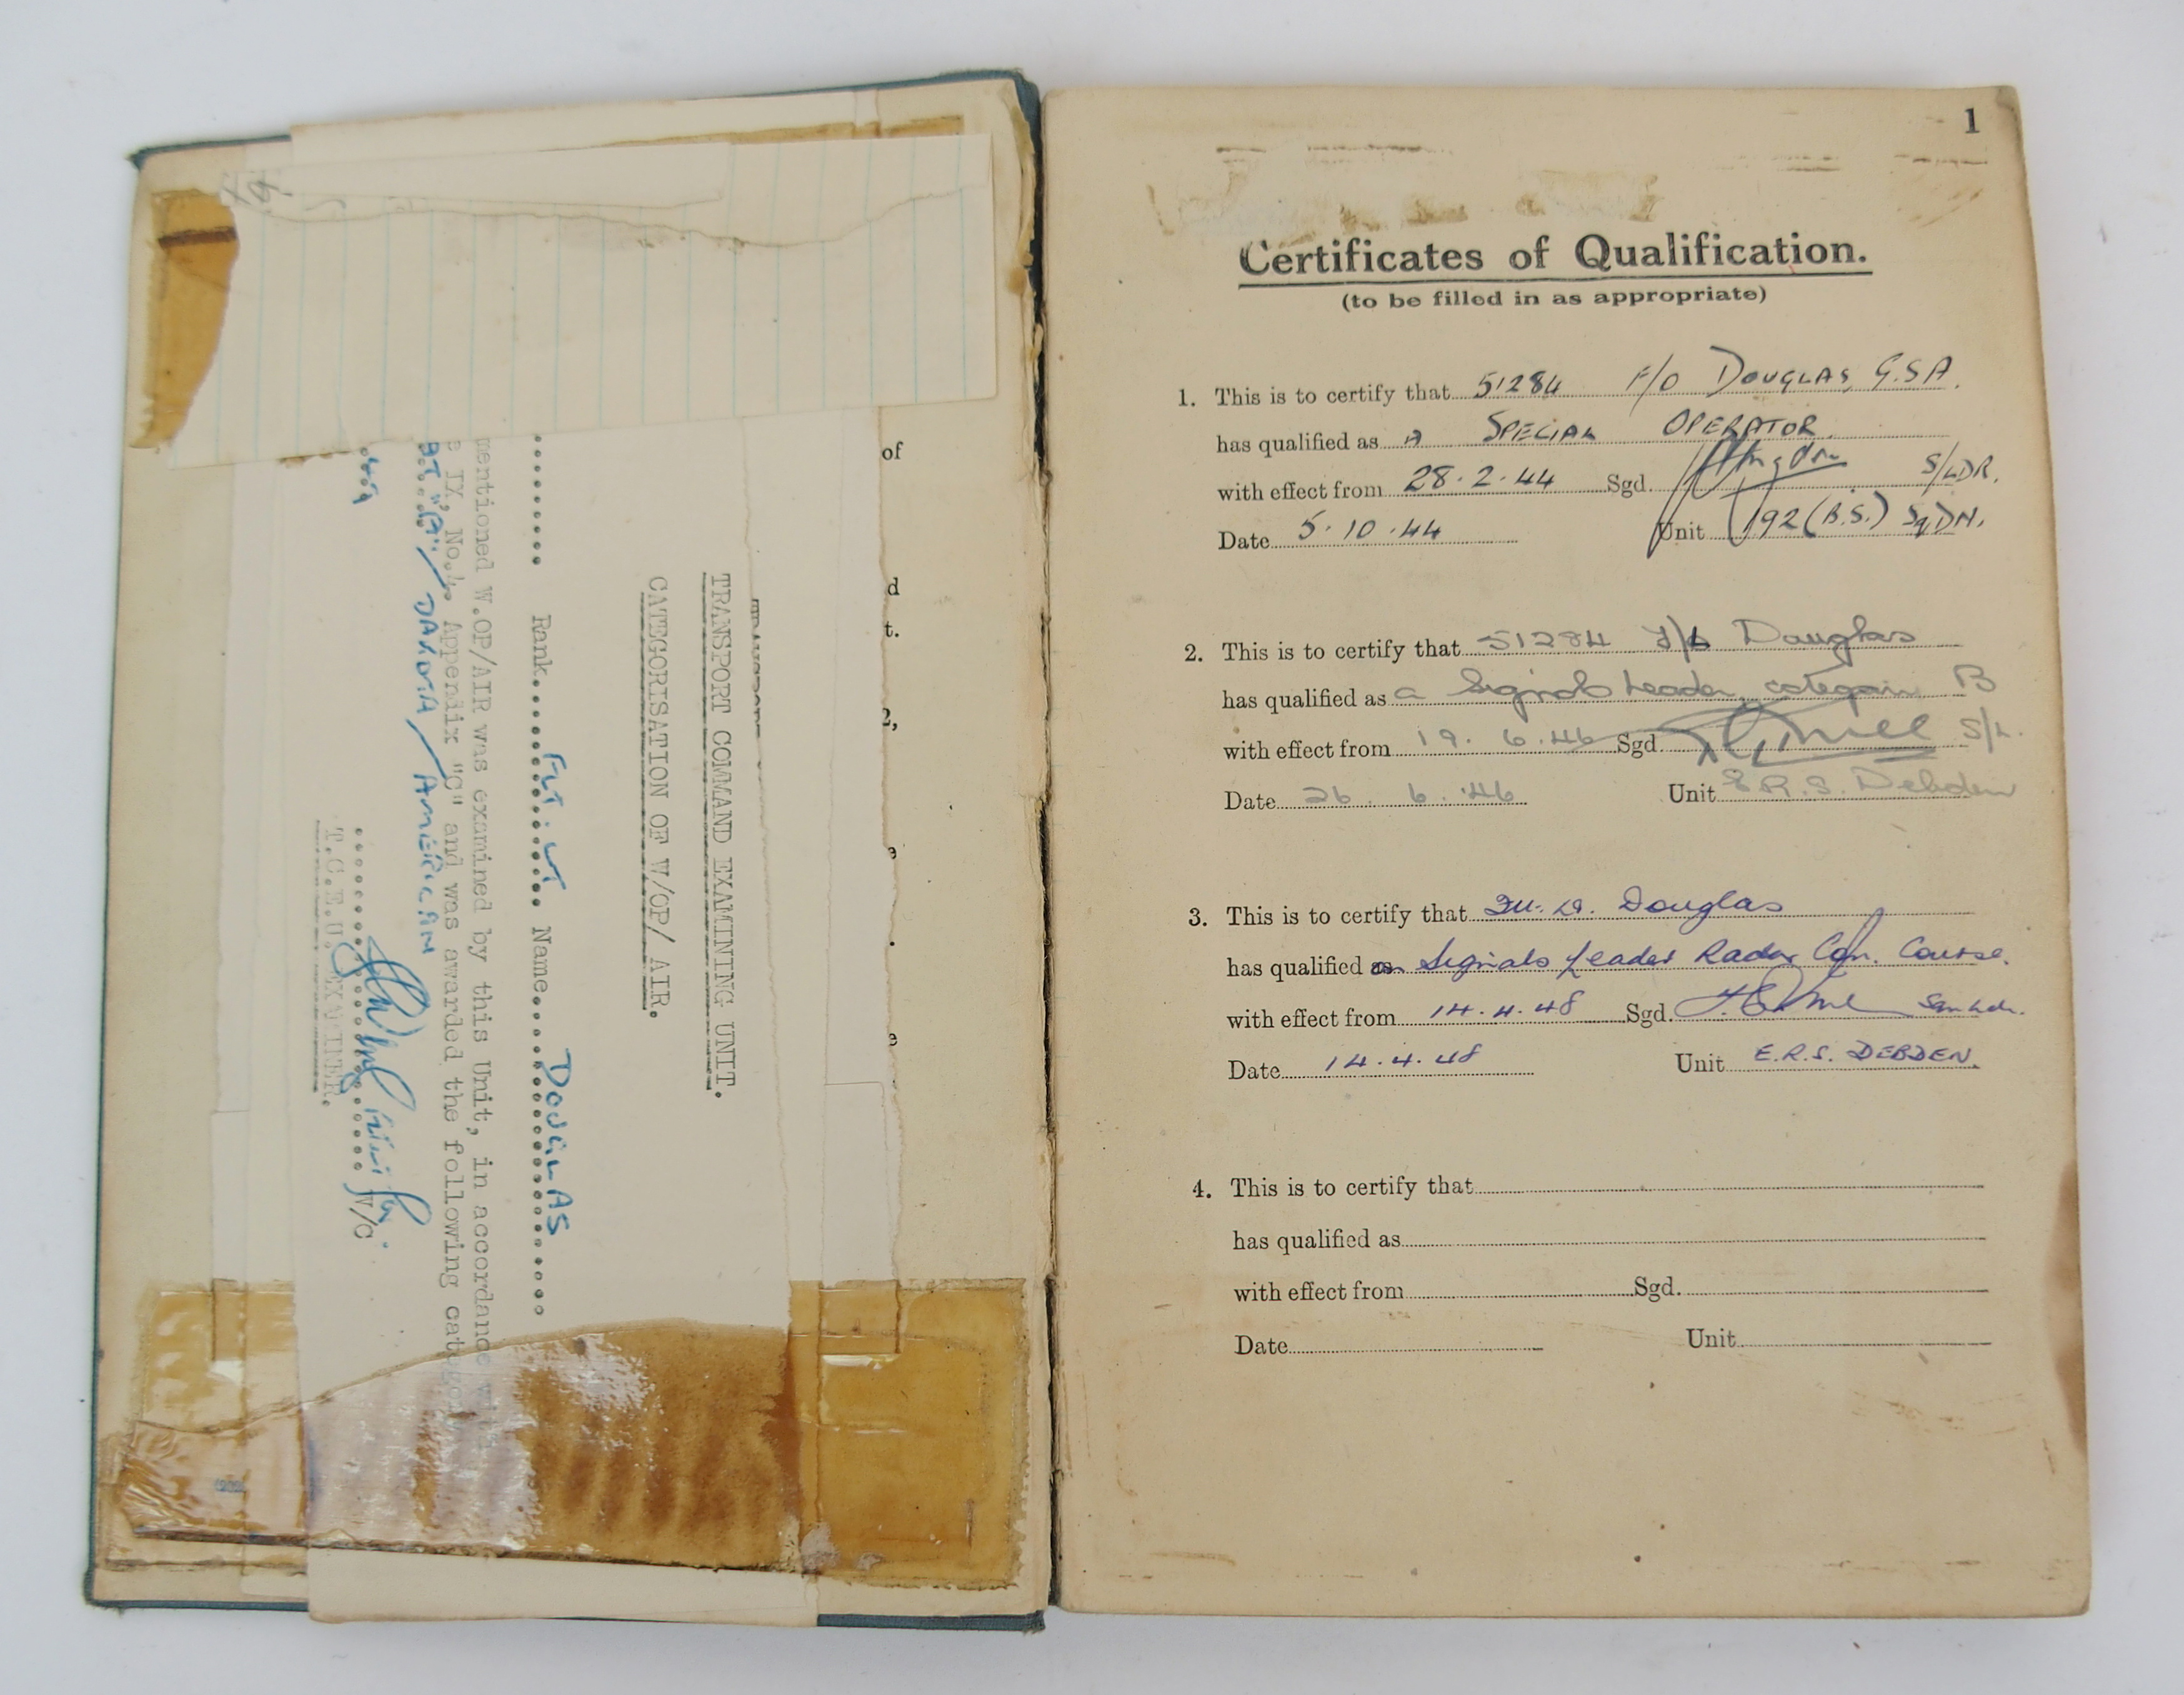 TRANSPORT COMMAND EXAMINING UNIT.
CATEGORISATION OF W/OP/ AIR.
Rank FLT. LT Name DOUGLAS
mentioned W.OP/AIR was examined by this Unit, in accordance with
IX, No.4. Appendix "C" and was awarded the following category
"B" / DAKOTA / AMERICAN
W/C
T.C.E.U. EXAMINER.
of
d
t.
2,
e
.
e
1
Certificates of Qualification.
(to be filled in as appropriate)
1. This is to certify that 51284 F/O DOUGLAS, G.S.A.
has qualified as A SPECIAL OPERATOR
with effect from 28.2.44 Sgd. S/LDR.
Date 5.10.44 Unit 192 (B.S.) SqDN.
2. This is to certify that 51284 F/L Douglas
has qualified as a Signals Leader, category B
with effect from 19.6.46 Sgd. S/L.
Date 26.6.46 Unit E.R.S. Debden
3. This is to certify that Douglas
has qualified as Signals Leader Radar Con. Course.
with effect from 14.4.48 Sgd.
Date 14.4.48 Unit E.R.S. DEBDEN.
4. This is to certify that
has qualified as
with effect from Sgd.
Date Unit